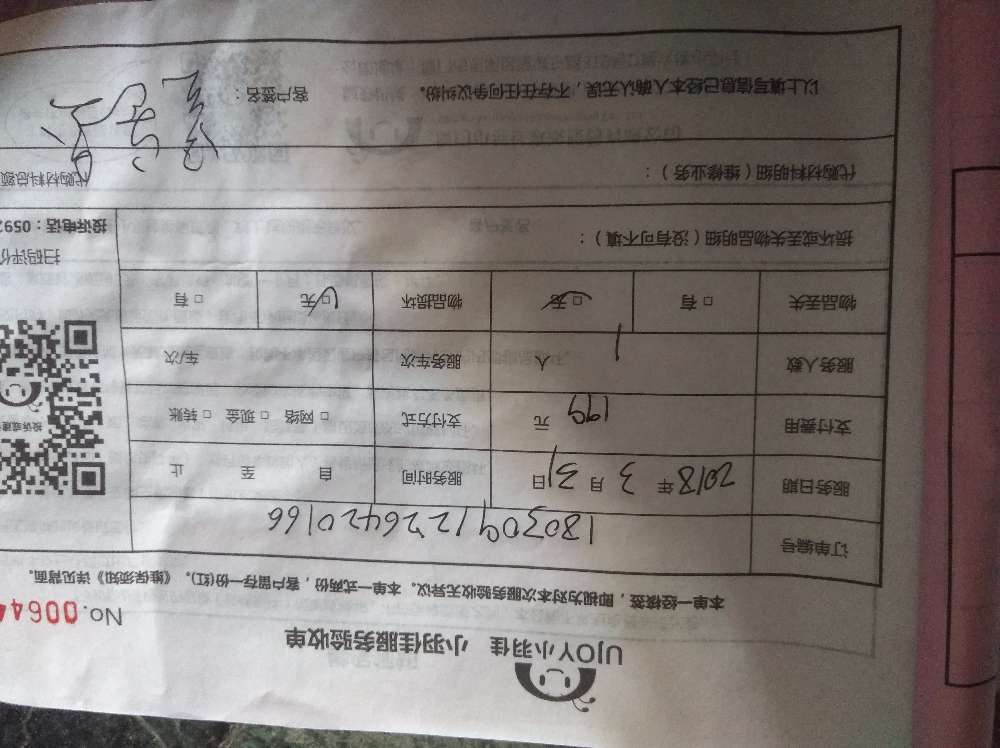 UJOY小羽佳 小羽佳服务验收单
No.00644
本单一经核签，即视为对本次服务验收无异议。本单一式两份，客户留存一份(红)。《维保须知》详见背面。
订单编号 1803091226420166
服务日期 2018年3月31日 服务时间 自 至 止
支付费用 199元 支付方式 □网络 □现金 □转账
服务人数 1人 服务车次 车/次
物品丢失 □有 □无 物品损坏 □无 □有
损坏或丢失物品明细（没有可不填）：
代购材料明细（维修业务）：
代购材料总额
以上填写信息已经本人确认无误，不存在任何争议纠纷。 客户签名：
投诉或建
扫码评价
投诉电话：0592